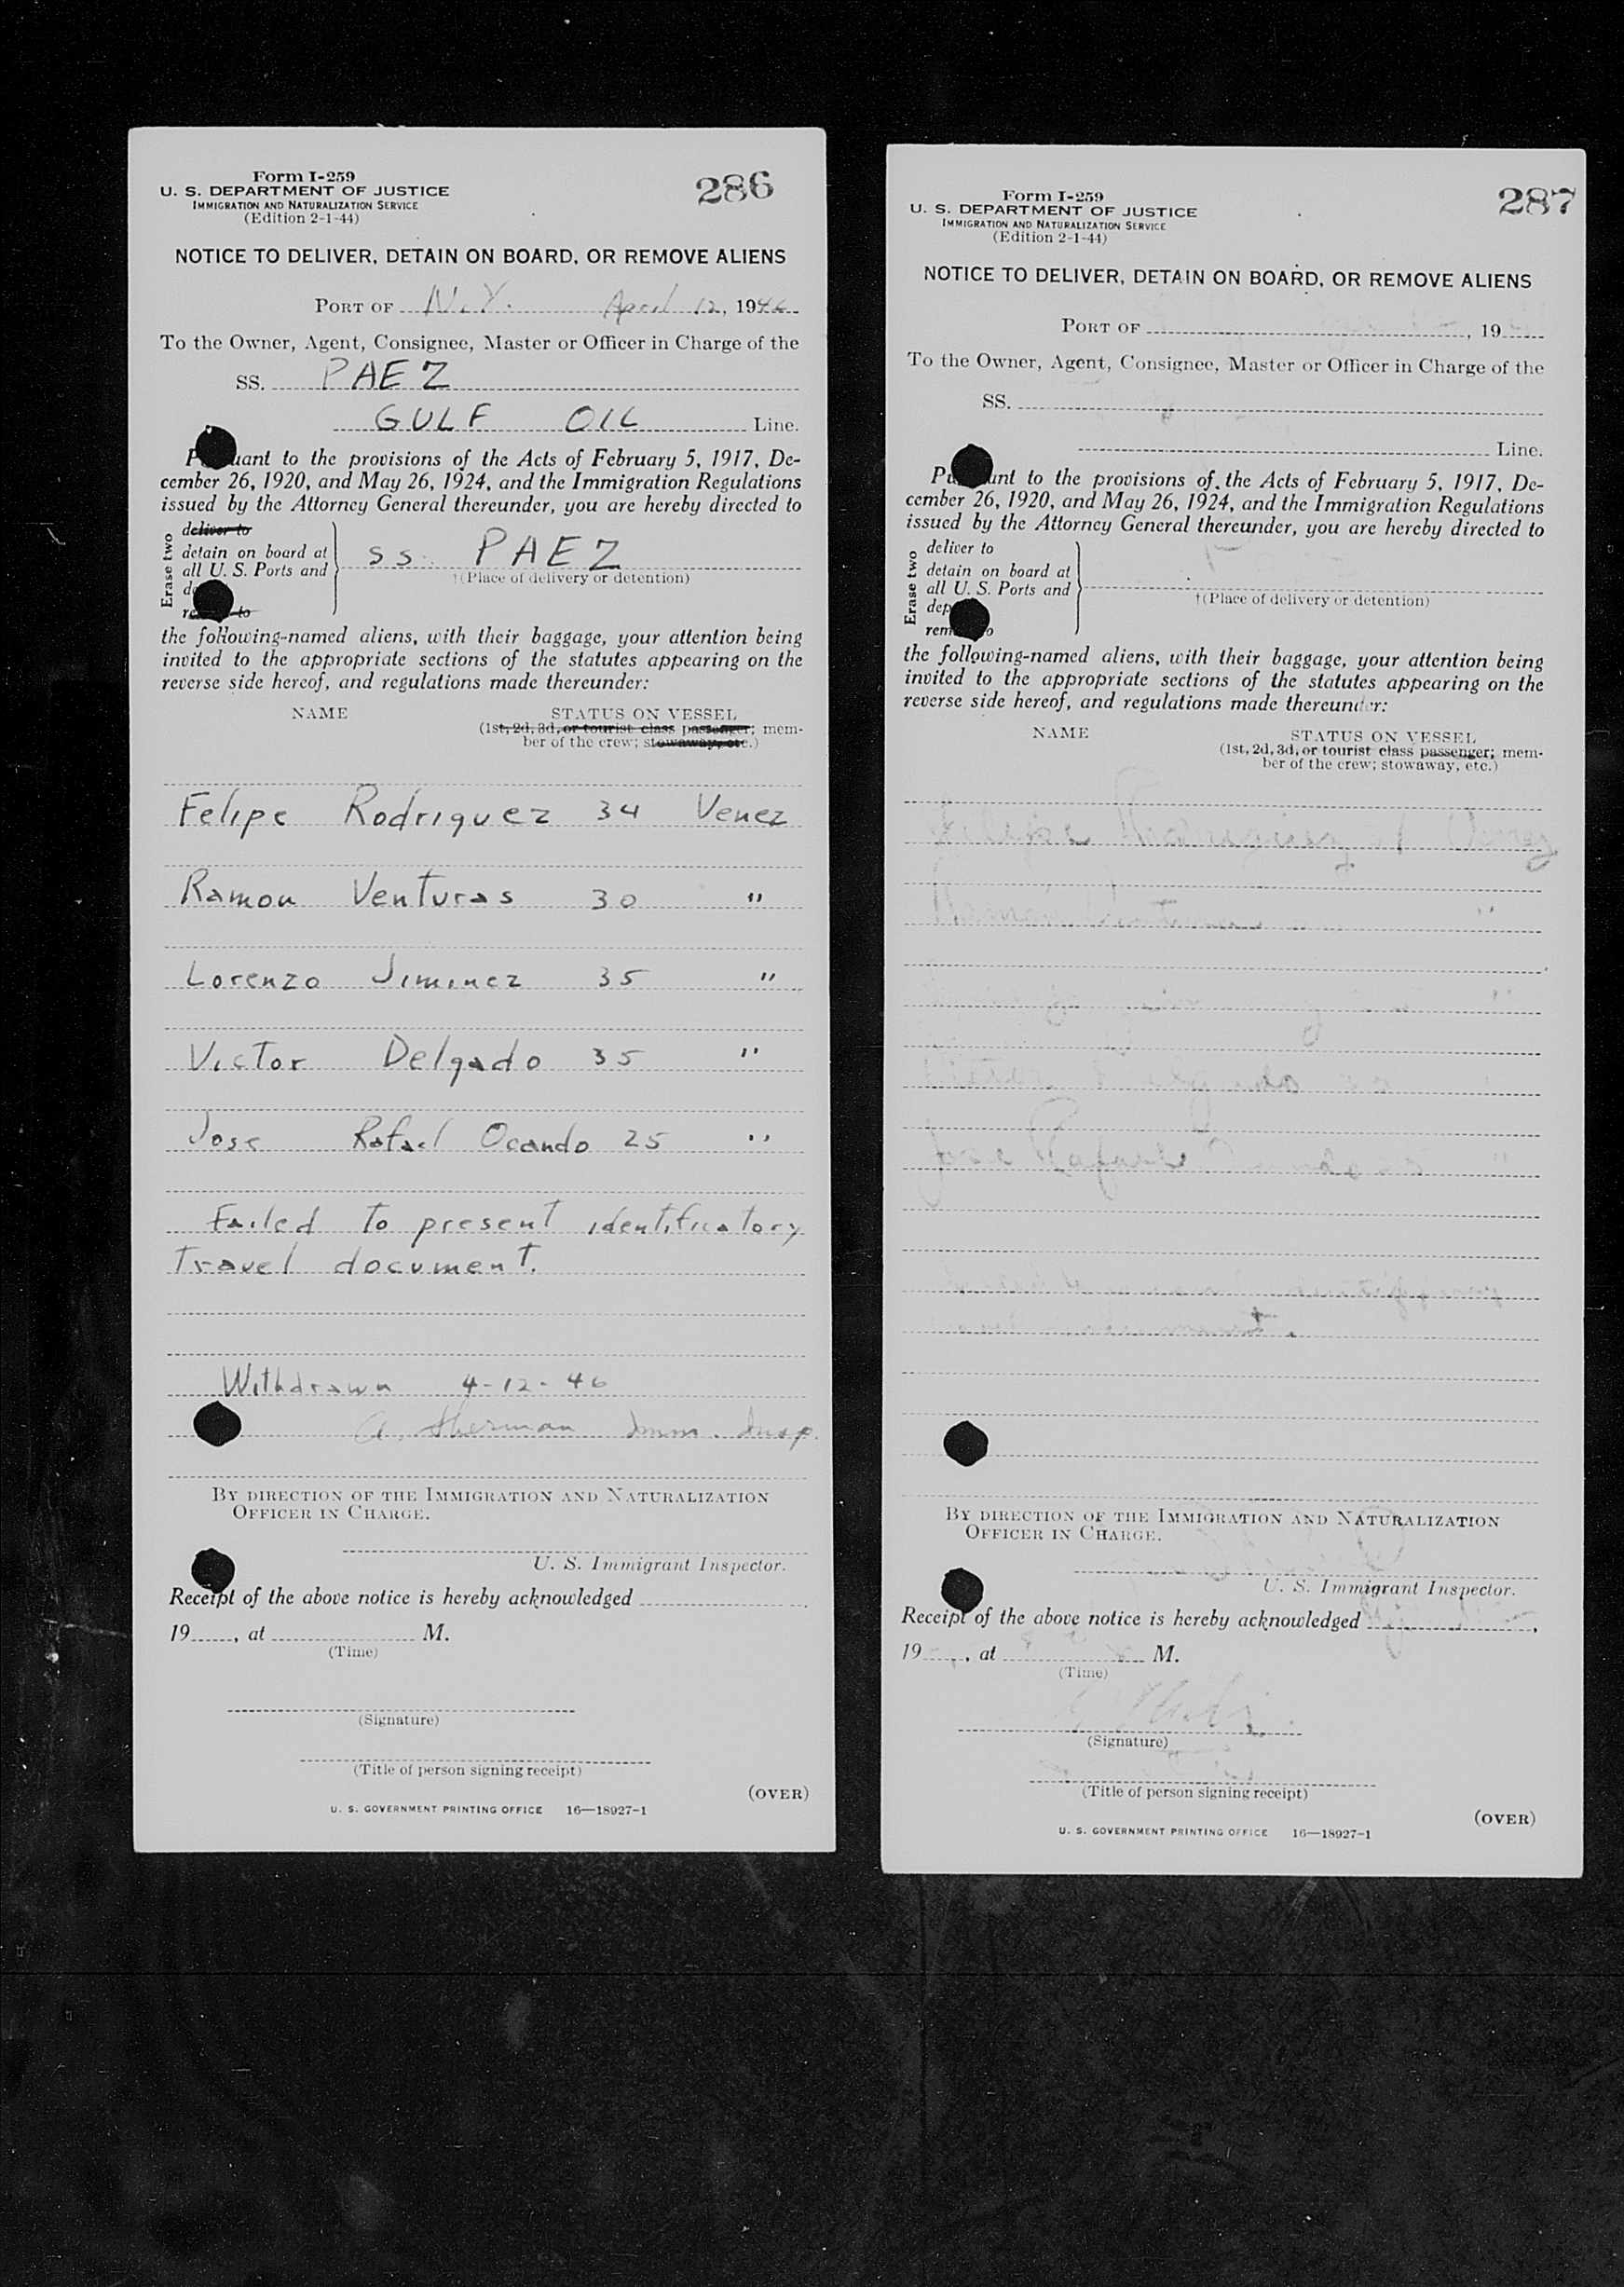 Form I-259
U. S. DEPARTMENT OF JUSTICE
IMMIGRATION AND NATURALIZATION SERVICE
(Edition 2-1-44)
286
NOTICE TO DELIVER, DETAIN ON BOARD, OR REMOVE ALIENS
PORT OF N.Y. April 12, 1946
To the Owner, Agent, Consignee, Master or Officer in Charge of the
SS. PAEZ
GULF OIL Line.
Pursuant to the provisions of the Acts of February 5, 1917, De-
cember 26, 1920, and May 26, 1924, and the Immigration Regulations
issued by the Attorney General thereunder, you are hereby directed to
Erase two
deliver to
detain on board at
all U. S. Ports and
remove to
SS. PAEZ
†(Place of delivery or detention)
the following-named aliens, with their baggage, your attention being
invited to the appropriate sections of the statutes appearing on the
reverse side hereof, and regulations made thereunder:
NAME STATUS ON VESSEL
(1st, 2d, 3d, or tourist class passenger; mem-
ber of the crew; stowaway, etc.)
Felipe Rodriquez 34 Venez
Ramon Venturas 30 "
Lorenzo Jiminez 35 "
Victor Delgado 35 "
Jose Rafael Ocando 25 "
Failed to present identificatory
Travel document.
Withdrawn 4-12-46
A. Sherman Imm. Insp.
BY DIRECTION OF THE IMMIGRATION AND NATURALIZATION
OFFICER IN CHARGE.
U. S. Immigrant Inspector.
Receipt of the above notice is hereby acknowledged
19 , at M.
(Time)
(Signature)
(Title of person signing receipt)
(OVER)
U. S. GOVERNMENT PRINTING OFFICE 16—18927-1
Form I-259
U. S. DEPARTMENT OF JUSTICE
IMMIGRATION AND NATURALIZATION SERVICE
(Edition 2-1-44)
287
NOTICE TO DELIVER, DETAIN ON BOARD, OR REMOVE ALIENS
PORT OF , 19
To the Owner, Agent, Consignee, Master or Officer in Charge of the
SS.
Line.
Pursuant to the provisions of the Acts of February 5, 1917, De-
cember 26, 1920, and May 26, 1924, and the Immigration Regulations
issued by the Attorney General thereunder, you are hereby directed to
Erase two
deliver to
detain on board at
all U. S. Ports and
remove to
†(Place of delivery or detention)
the following-named aliens, with their baggage, your attention being
invited to the appropriate sections of the statutes appearing on the
reverse side hereof, and regulations made thereunder:
NAME STATUS ON VESSEL
(1st, 2d, 3d, or tourist class passenger; mem-
ber of the crew; stowaway, etc.)
Felipe Rodriguez
Jose Rafael
BY DIRECTION OF THE IMMIGRATION AND NATURALIZATION
OFFICER IN CHARGE.
U. S. Immigrant Inspector.
Receipt of the above notice is hereby acknowledged ,
19 , at M.
(Time)
(Signature)
(Title of person signing receipt)
(OVER)
U. S. GOVERNMENT PRINTING OFFICE 16—18927-1